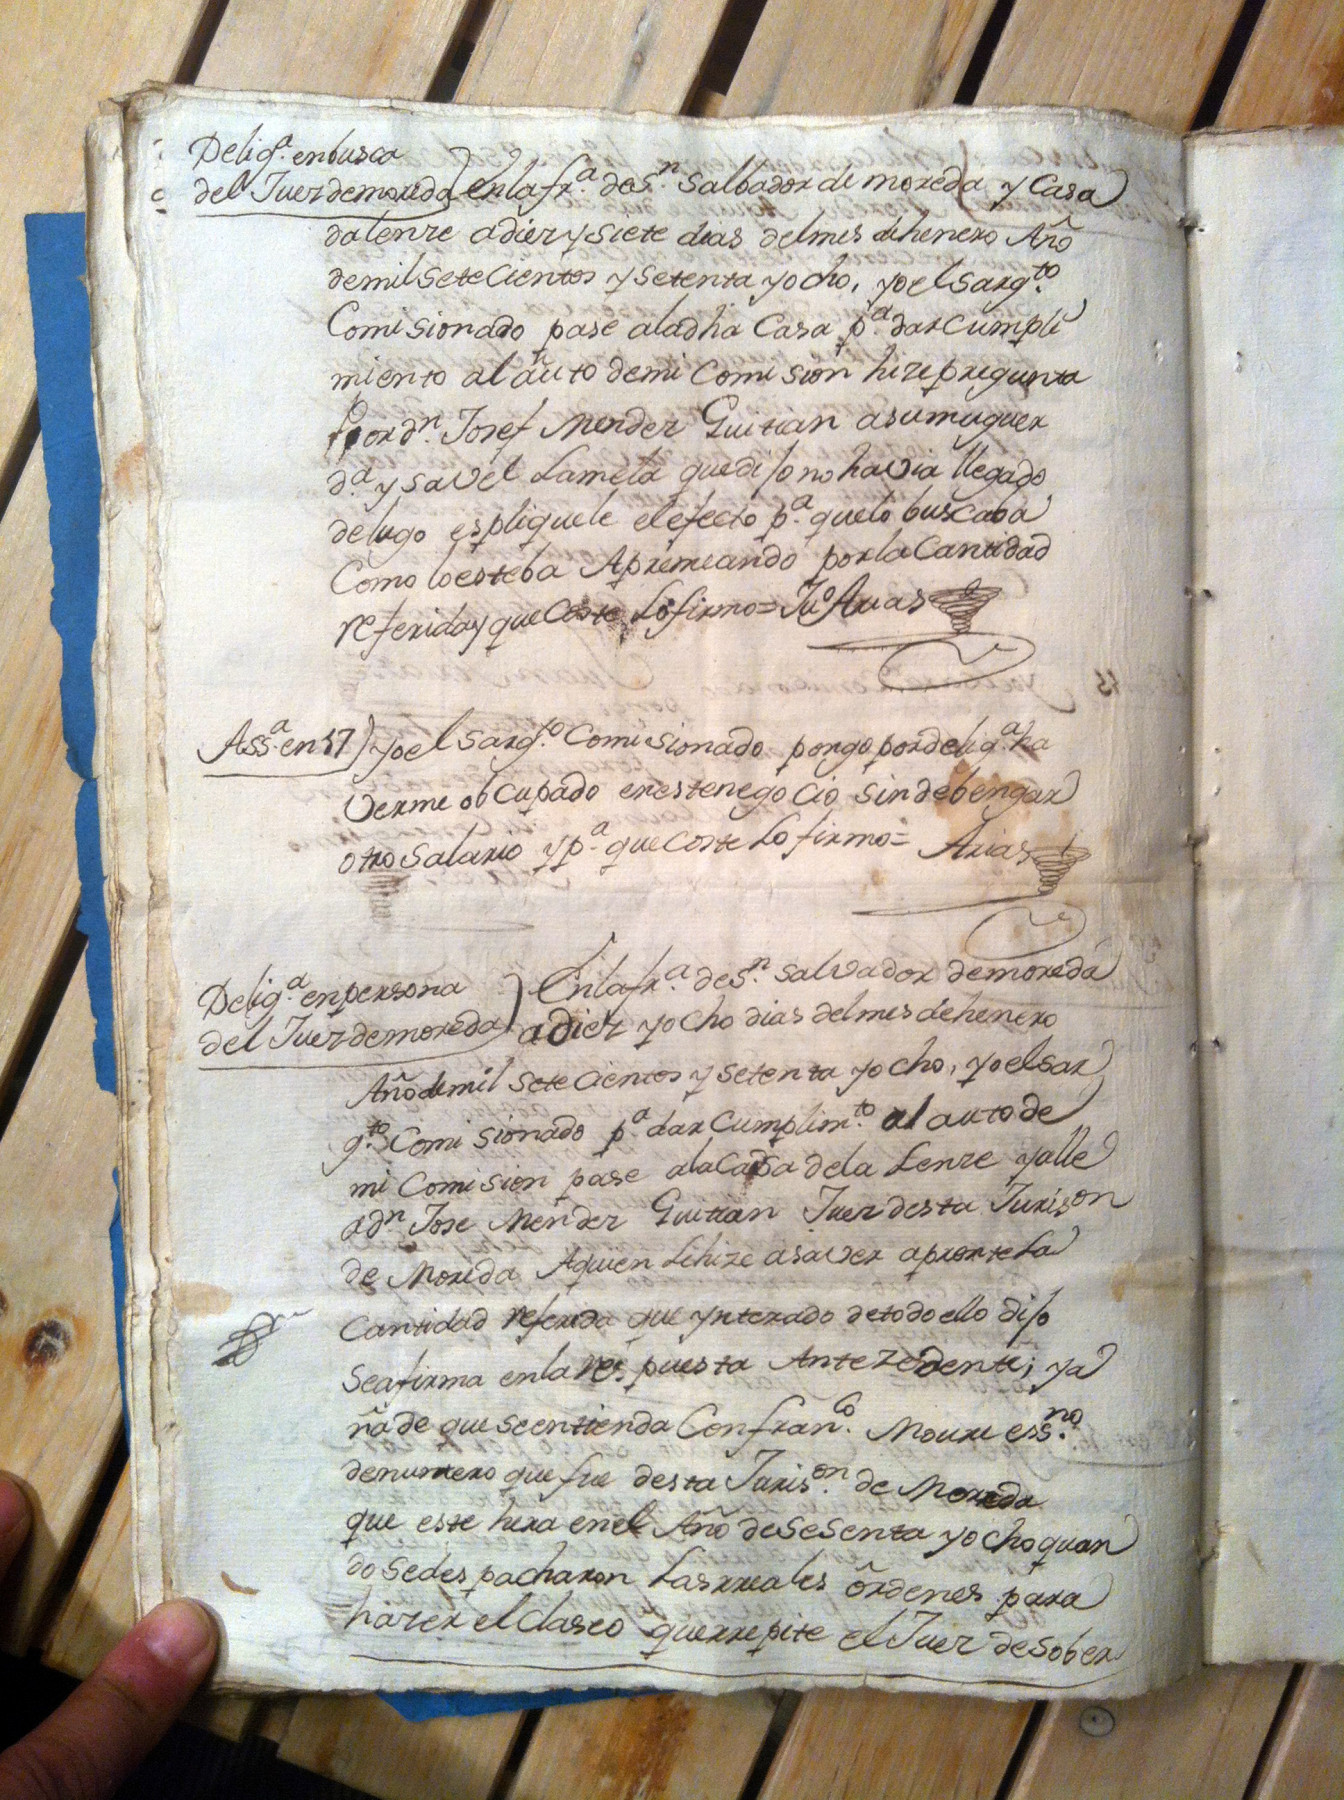 Delig.ª en busca
del Juez de moreda) en la fr.ª de S.n Salbador de moreda y Casa
da lenze a diez y siete dias del mes de henero Año
de mil sete Cientos y setenta y ocho, yo el sarg.to
Comisionado pase a la dha Casa p.ª dar Cumpli
miento al auto de mi Comision hize pregunta
por d.n Josef Mendez Guitian a su muguer
d.ª ysavel Lamela que dijo no havia llegado
de lugo espliquele el efecto p.ª que lo buscaba
Como lo esteba Apremeando por la Cantidad
referida y que Coste lo firmo= Ju.o Arias
Ass.ª en 17) yo el sarg.to Comisionado pongo por delig.ª ha
verme obcupado en este negocio sin debengar
otro salario y p.ª que Coste lo firmo= Arias
Delig.ª en persona
del Juez de moreda) En la fr.ª de S.n Salvador de moreda
a diez y ocho dias del mes de henero
Año de mil sete Cientos y setenta y ocho, yo el sar
g.to Comisionado p.ª dar Cumplim.to al auto de
mi Comision pase a la Casa de la Lenze y alle
a d.n Jose Mendez Guitian Juez desta Juris.on
de Moreda Aquien le hize a saver apronte la
Cantidad referida que ynterado de todo ello dijo
se afirma en la respuesta Antezedente; y a
ñade que se entienda Con fran.co Moure ess.no
de numero que fue desta Juris.on de Moreda
que este hera en el Año de sesenta y ocho quan
do se despacharon las rreales órdenes para
hazer el Claseo que rrepite el Juez de Sober